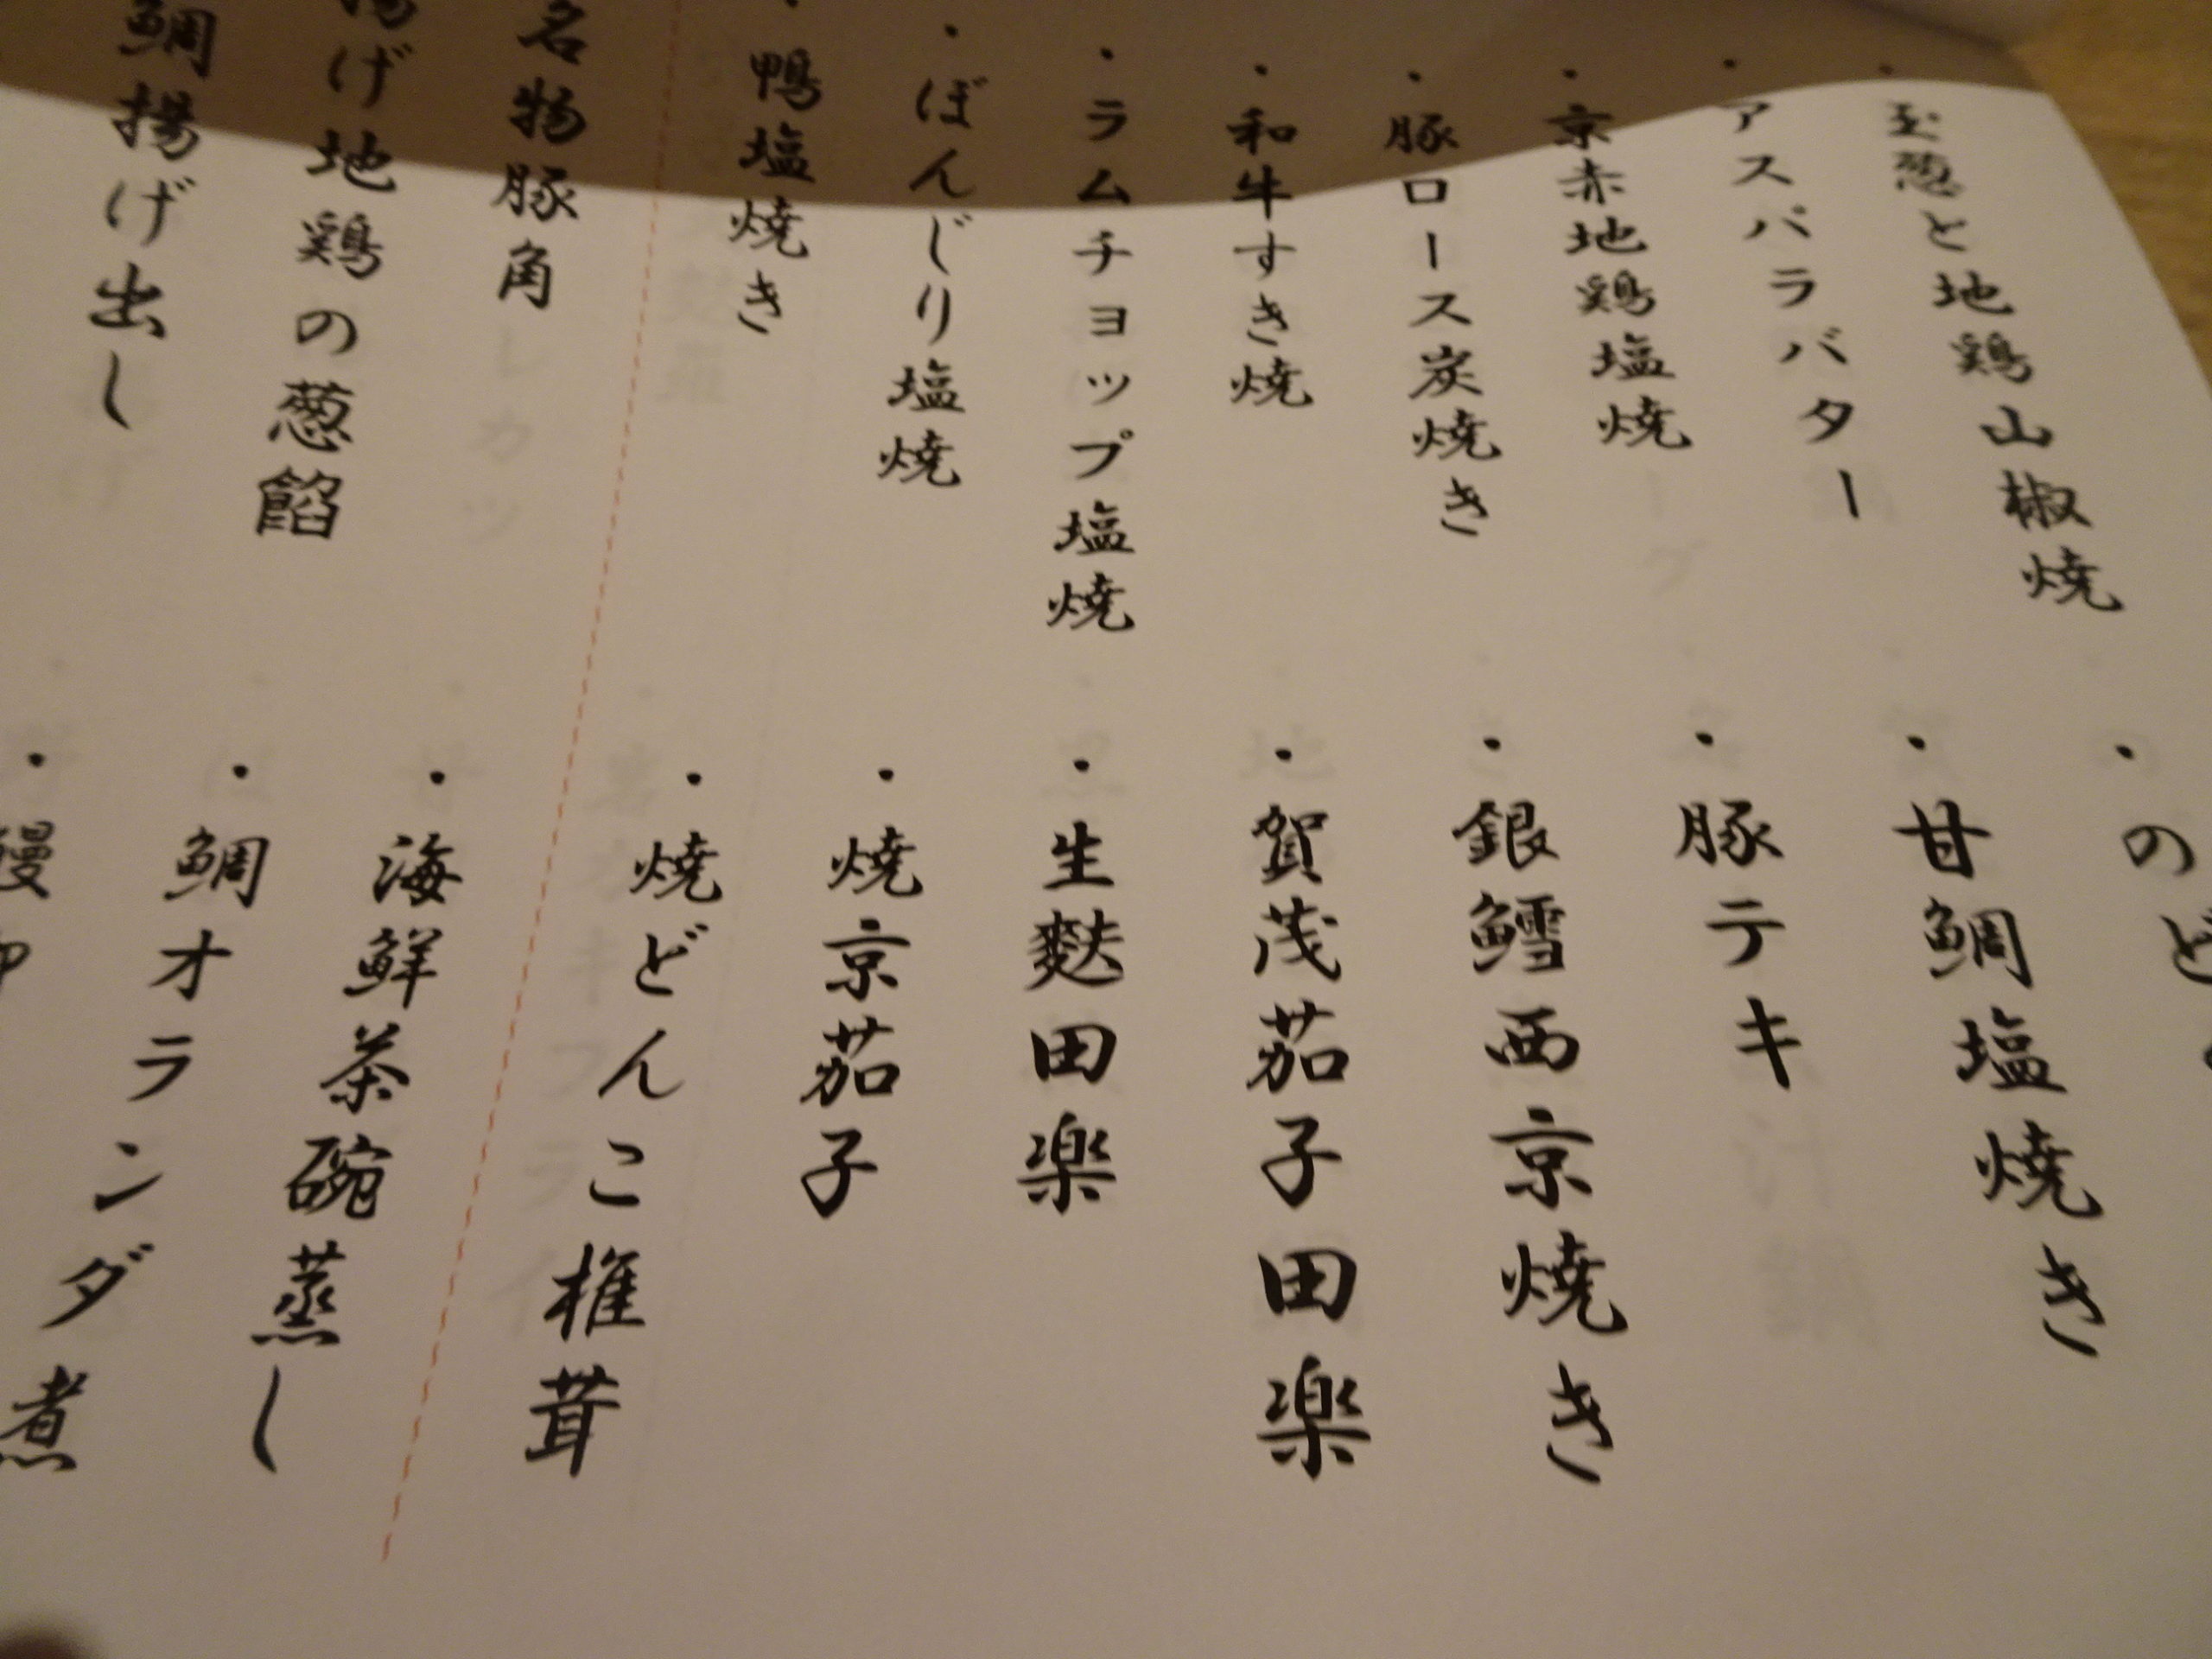 玉葱と地鶏山椒焼
アスパラバター
京赤地鶏塩焼
・豚ロース炭焼き
・和牛すき焼
・ラムチョップ塩焼
・ぼんじり塩焼
・鴨塩焼き
名物豚角
揚げ地鶏の葱餡
鯛揚げ出し
・のど
・甘鯛塩焼き
・豚テキ
・銀鱈西京焼き
・賀茂茄子田楽
・生麩田楽
・焼京茄子
・焼どんこ椎茸
・海鮮茶碗蒸し
・鯛オランダ煮